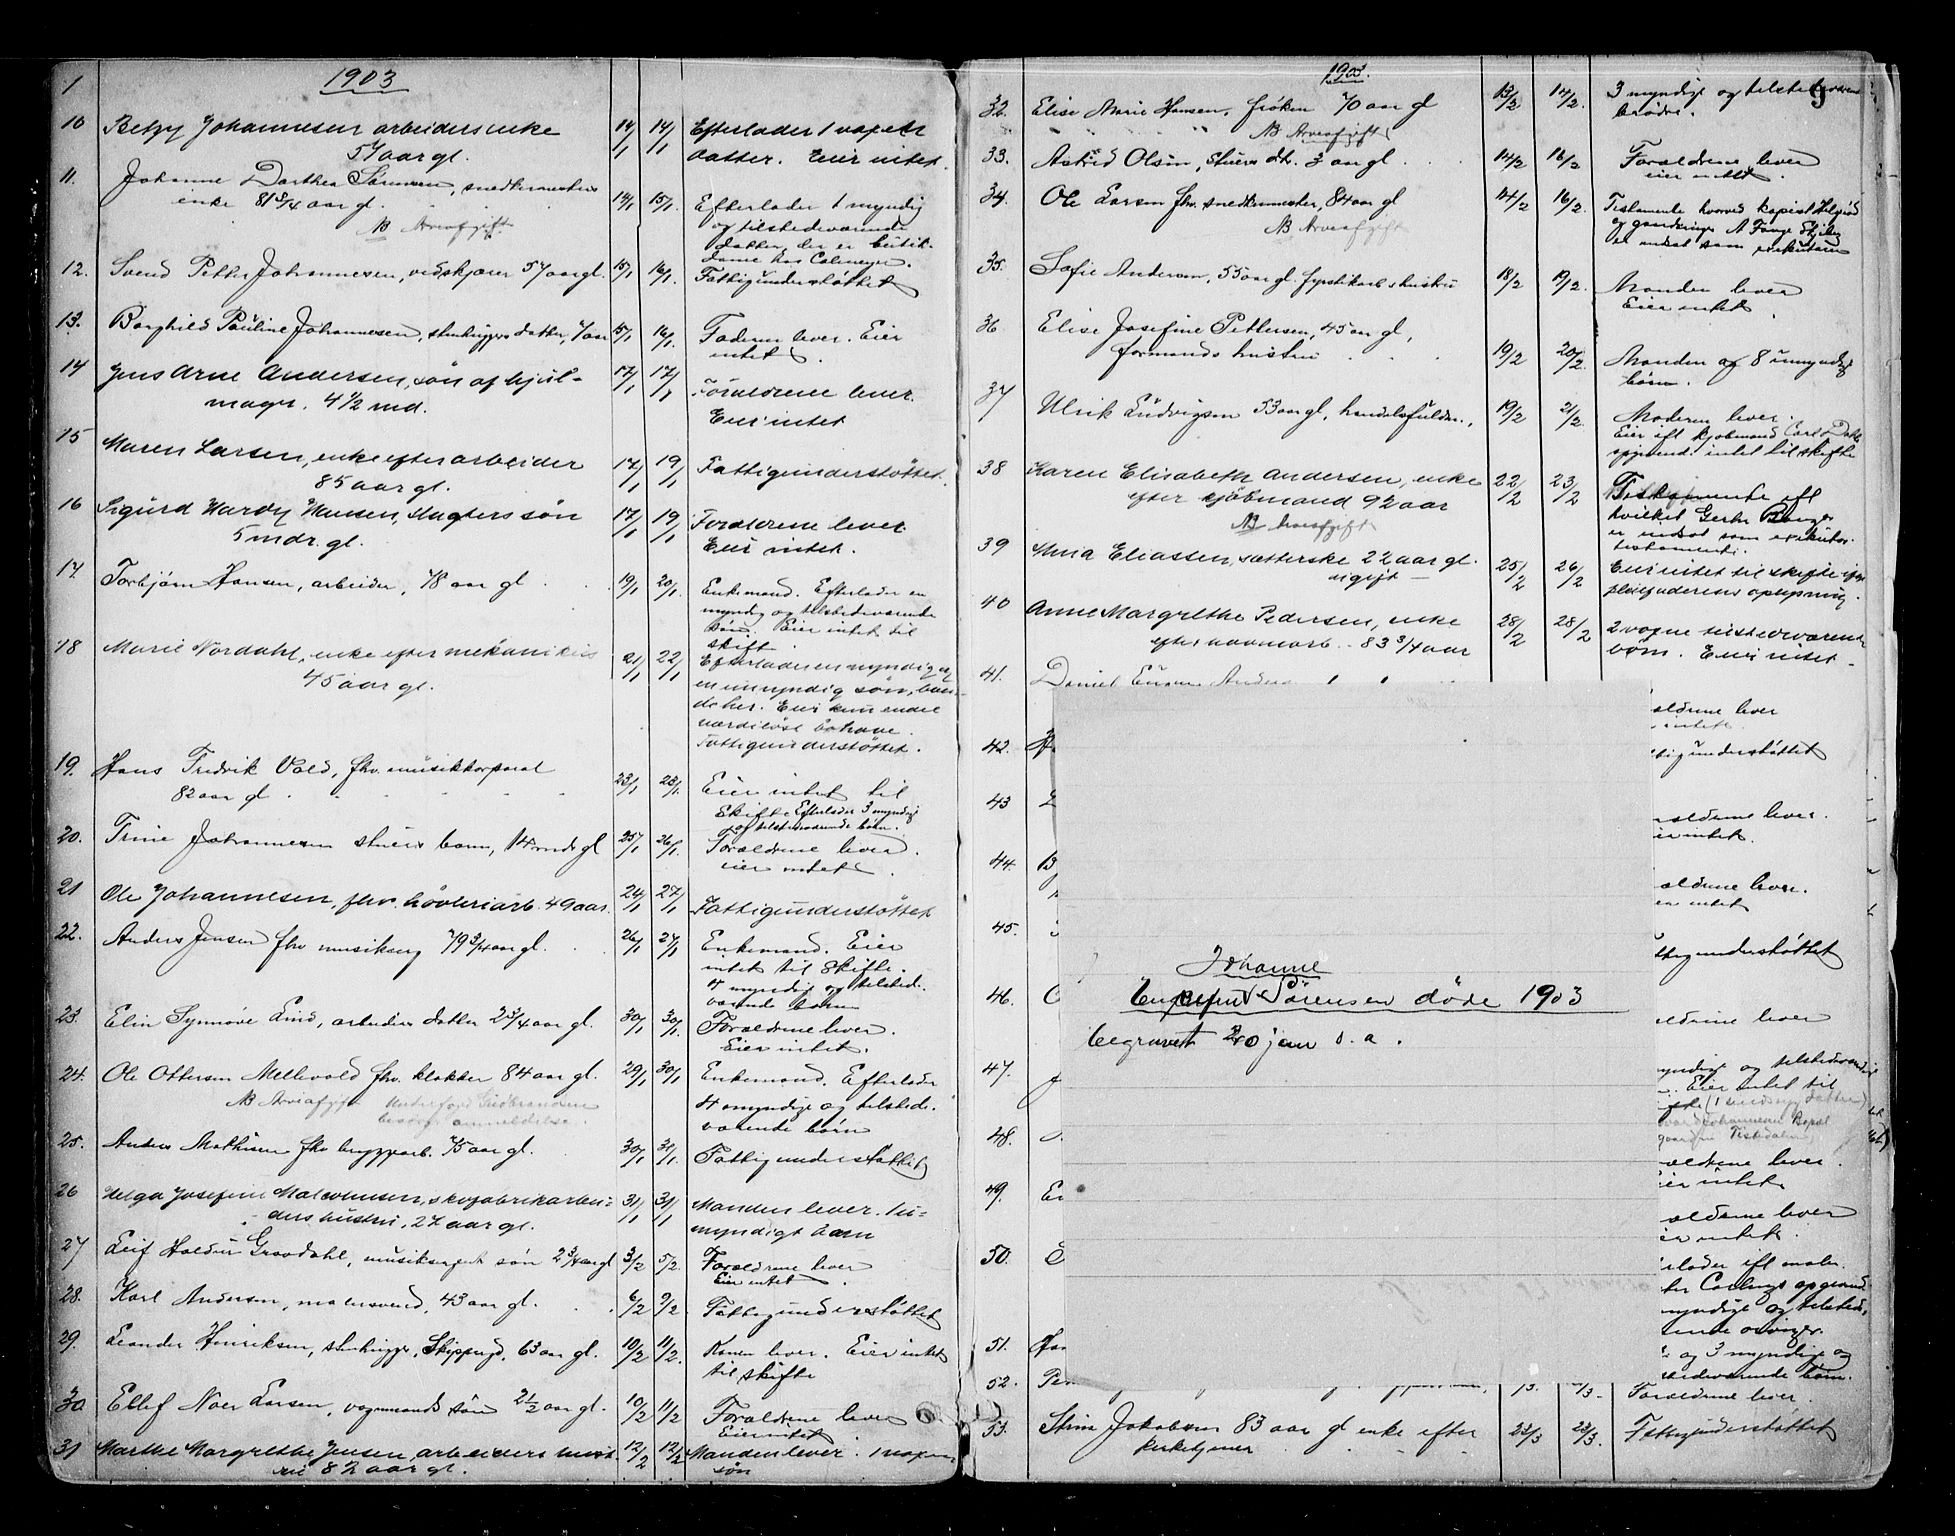 1903
10 Betzy Johannesen arbeiders enke 14/1 14/1 Efterlader 1 voxen
57 aar gl. datter. Eier intet.
11. Johanne Dorthea Sørensen, snedkermesters
enke 81 3/4 aar gl. 14/1 15/1. Efterlader 1 myndig
NB Arveafgift og tilstedeværende
datter, der er butik-
dame hos Calmeyer.
12. Svend Petter Johannesen, vedskjærer 57 aar gl. 15/1 16/1. Fattigunderstøttet
13. Borghild Pauline Johannesen, stenhuggers datter, 7 aar 15/1 16/1. Faderen lever. Eier
intet.
14 Jens Arne Andersen, søn af hjul- 17/1 17/1 Forældrene lever.
mager. 4 1/2 md. Eier intet
15 Maren Larsen, enke efter arbeider 17/1 19/1 Fattigunderstøttet.
85 aar gl.
16 Sigurd Hardy Hansen, slagters søn 17/1 19/1 Forældrene lever
5 mdr. gl. Eier intet.
17. Torbjørn Hansen, arbeider, 78 aar gl. 19/1 20/1. Enkemand. Efterlader en
myndig og tilstedeværende
søn. Eier intet til
skifte.
18 Marie Nordahl, enke efter mekanikus 21/1 22/1 Efterlader en myndig og
45 aar gl. en umyndig søn, boen-
de her. Eier kun endel
værdiløst bohave.
Fattigunderstøttet.
19. Hans Fredrik Vold, fhv. musikkorporal
82 aar gl. 23/1 23/1. Eier intet til
skifte. Efterlader 3 myndige
og tilstedeværende børn.
20. Trine Johannesen stuers barn, 14 mdr gl 25/1 26/1. Forældrene lever.
eier intet.
21 Ole Johannesen, fhv. høvleriarb. 49 aar. 24/1 27/1 Fattigunderstøttet
22. Anders Jensen fhv musikserg 79 3/4 aar gl. 26/1 27/1 Enkemand. Eier
intet til skifte.
4 myndig og tilstede-
værende børn
23. Elin Synnøve Lind, arbeiders datter 2 3/4 aar gl. 30/1 30/1. Forældrene lever.
Eier intet.
24. Ole Ottersen Mellevold fhv. klokker 84 aar gl. 29/1 30/1 Enkemand. Efterlader
NB Arveafgift Underfoged Guldbrandsen 4 myndige og tilstede-
besørger anmeldelse. værende børn
25. Anders Mathisen fhv bryggearb. 75 aar gl. 30/1 31/1. Fattigunderstøttet
26 Helga Josefine Malvinsen, skofabrikarbei- 31/1 31/1 Manden lever. 1 u-
ders hustru, 27 aar gl. myndigt barn
27 Leif Haldur Graadahl, musiksergents søn 2 3/4 aar gl 3/2 5/2. Forældrene lever
Eier intet.
28. Karl Andersen, malersvend, 43 aar gl. 6/2 9/2. Fattigunderstøttet
29. Leander Henriksen, stenhugger, Skippergd, 63 aar gl. 10/2 11/2. Konen lever. Eier intet
til skifte
30 Ellef Noer Larsen, vognmands søn 2 1/2 aar gl. 10/2 11/2 Forældrene lever
Eier intet.
31 Marthe Margrethe Jensen, arbeiders hust- 12/2 12/2 Manden lever. 1 voxen
ru 82 aar gl. søn
1903.
32. Elise Marie Hansen, frøken 70 aar gl 13/2 14/2. 3 myndige og tilstedeværende
NB Arveafgift brødre.
33. Astrid Olsen, stuers dtr. 3 aar gl. 14/2 16/2. Forældrene lever
eier intet.
34. Ole Larsen fhv. snedkermester, 84 aar gl 14/2 16/2. Testamente hvorved kopist
NB Arveafgift og
er indsat som exekutorer
35. Sofie Andersen, 55 aar gl. fyrstikarb. hustru 18/2 19/2. Manden lever
Eier intet.
36 Elise Josefine Pettersen, 45 aar gl,
formands hustru 19/2 20/2. Manden og 8 umyndige
børn.
37 Ulrik Ludvigsen 53 aar gl, handelsfuldm., 19/2 21/2. Moderen lever.
Eier ift kjøbmand Carl Dahl
intet til skifte
38 Karen Elisabeth Andersen, enke 22/2 23/2 Testamente ift
efter kjøbmand 92 aar hvilket Gerhr
NB Arveafgift er indsat som exekutor
testamenti.
39 Anna Eliassen, sætterske 22 aar gl. 25/2 26/2 Eier intet til skifte ifølge
ugift pleiefaderens opgivning.
40 Anne Margrethe Pedersen, enke 28/2 28/2 2 voxne tilstedeværende
efter havnearb. 83 3/4 aar børn. Eier intet
41. Daniel
ældrene lever
intet
42. tigunderstøttet
43 rældrene lever.
ier intet.
44. ældrene lever.
er intet
45. ttigunderstøttet
Johanne
Sørensen døde 1903
begravet 20 jan s. a.
46. eldrene lever
47. myndig og tilstedeværende
Eier intet til
skifte (1 sindssyg datter)
48. ældrene lever.
ier intet.
49. ældrene lever
er intet.
50. erlader ift maler
opgivende
myndige og tilstede-
51. og 3 myndige og
tilstedeværende børn.
52. Forældrene lever.
53. Stine Jakobsen 83 aar gl enke efter 22/3 23/3. Fattigunderstøttet
kirketjener